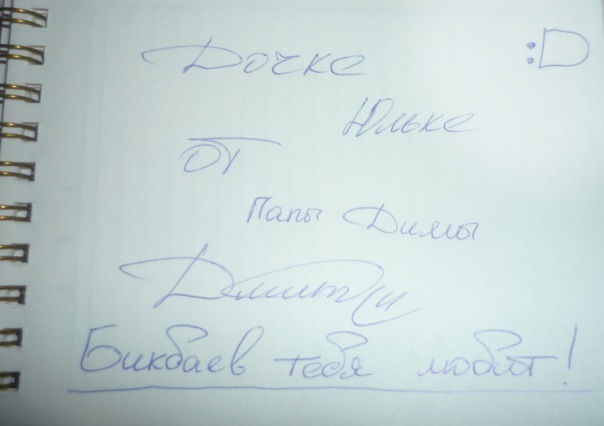 Дочке :D
Юльке
от
Папы Димы
Дмитрий
Бикбаев тебя любит!